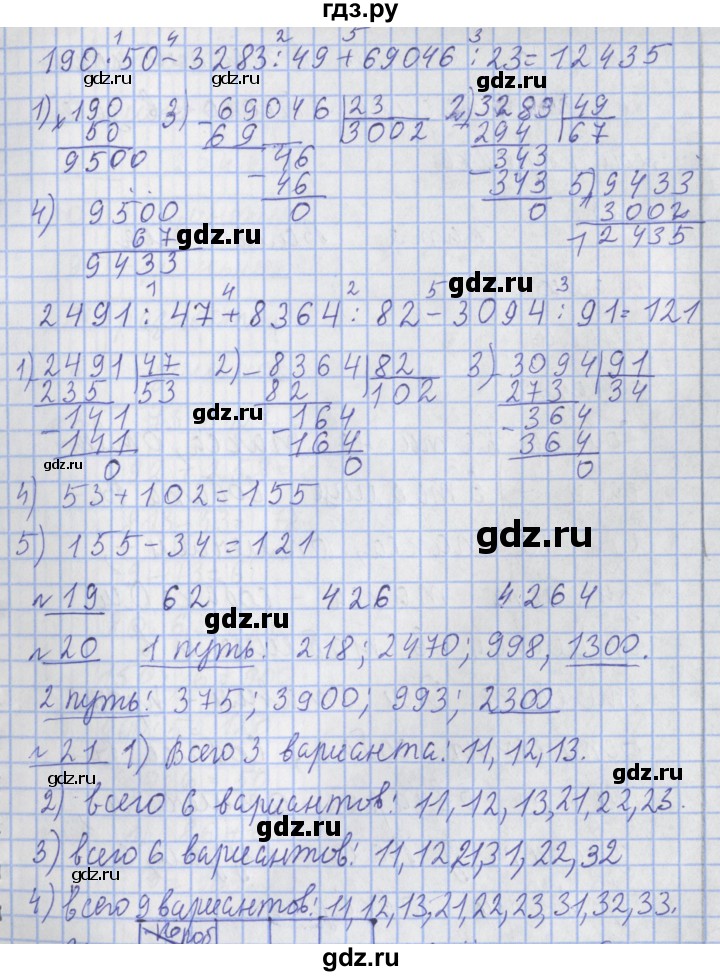 гдз.ру
1 4 2 5 3
190·50-3283:49+69046:23=12435
1) ×190 3) -69046 |23 2) 3283 |49
50 69 3002 294 67
9500 46 -343
-46 343 5) 9433
4) 9500 0 0 3002
67 12435
9433
1 4 2 5 3
2491:47+8364:82-3094:91=121
1) 2491 |47 2) -8364 |82 3) 3094 |91
235 53 82 102 273 34
-141 -164 -364
141 164 364
0 0 0
4) 53+102=155
5) 155-34=121
№19 62 426 4264
№20 1 путь: 218; 2470; 998, 1300.
2 путь: 375; 3900; 993; 2300
№21 1) Всего 3 варианта: 11, 12, 13.
2) всего 6 вариантов: 11, 12, 13, 21, 22, 23.
3) всего 6 вариантов: 11, 12, 21, 31, 22, 32
4) всего 9 вариантов: 11, 12, 13, 21, 22, 23, 31, 32, 33.
gdz.ru
gdz.ru
gdz.ru
gdz.ru
gdz.ru
gdz.ru
gdz.ru
gdz.ru
gdz.ru
gdz.ru
gdz.ru
gdz.ru
gdz.ru
gdz.ru